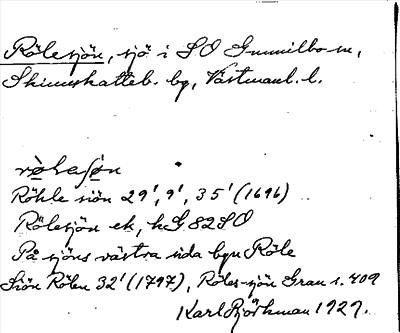 Rölesjön, sjö i SO Gunnilbo sn,
Skinnskatteb. bg, Västmanl. l.
rø̀lasǿn
Röhle siön 29', 9', 35' (1696)
Rölesjön ek, h G 82 SO
På sjöns västra sida byn Röle
Siön Rölen 32' (1797), Röles-sjön Grau s. 409
Karl Björkman 1927.